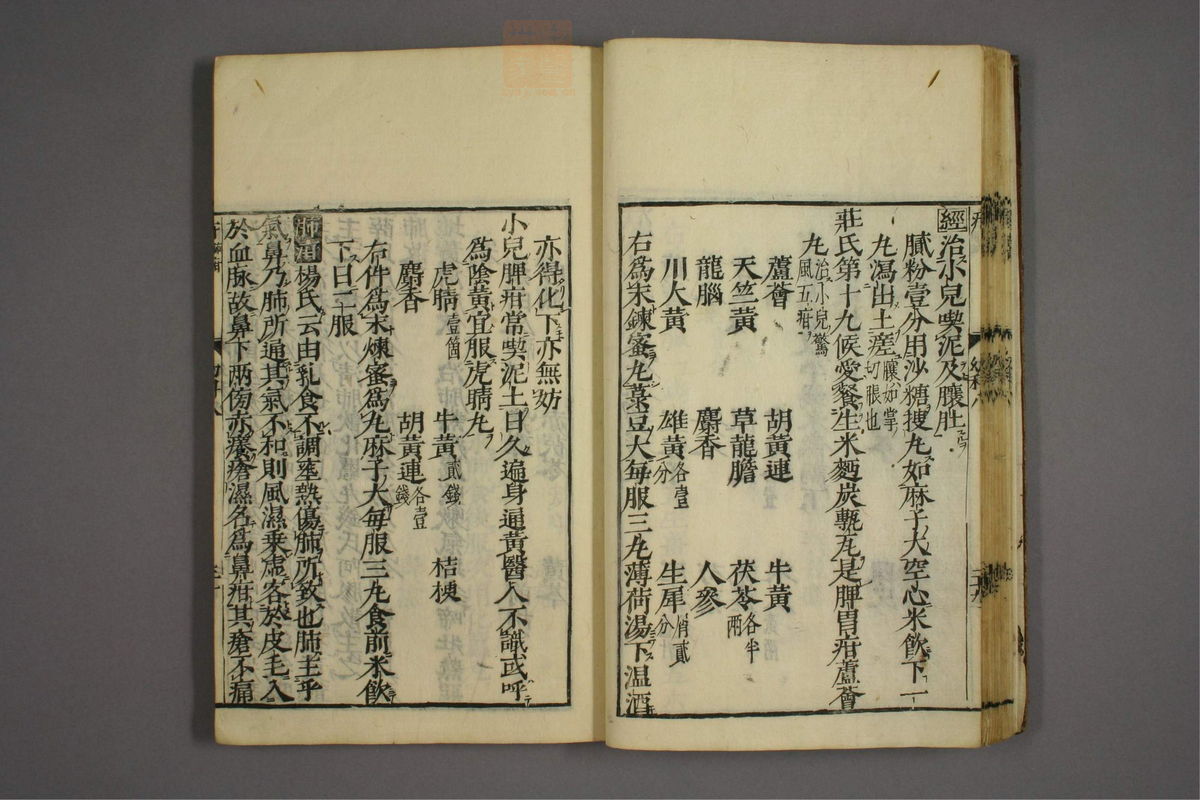 經治小兒喫泥及䑋肚
膩粉壹分用沙糖搜丸如麻子大空心米飲下一
丸瀉出土瘥䑋如掌切脹也
莊氏第十九候愛餐生米麪炭甎瓦是脾胃疳蘆薈
丸治小兒驚風五疳
蘆薈 胡黃連 牛黃
天竺黃 草龍膽 茯苓各半兩
龍腦 麝香 人參
川大黃 雄黃各壹分 生犀屑貳分
右為末鍊蜜丸菉豆大每服三丸薄荷湯下温酒
亦得化下亦無妨
小兒脾疳常喫泥土日久遍身通黃醫人不識或呼
為陰黃宜服虎睛丸
虎睛壹箇 牛黃貳錢 桔梗
麝香 胡黃連各壹錢
右件為末煉蜜為丸麻子大每服三丸食前米飲
下日二服
肺疳楊氏云由乳食不調壅熱傷肺所致也肺主乎
氣鼻乃肺所通其氣不和則風濕乗虛客於皮毛入
於血脉故鼻下兩傍赤癢瘡濕名為鼻疳其瘡不痛